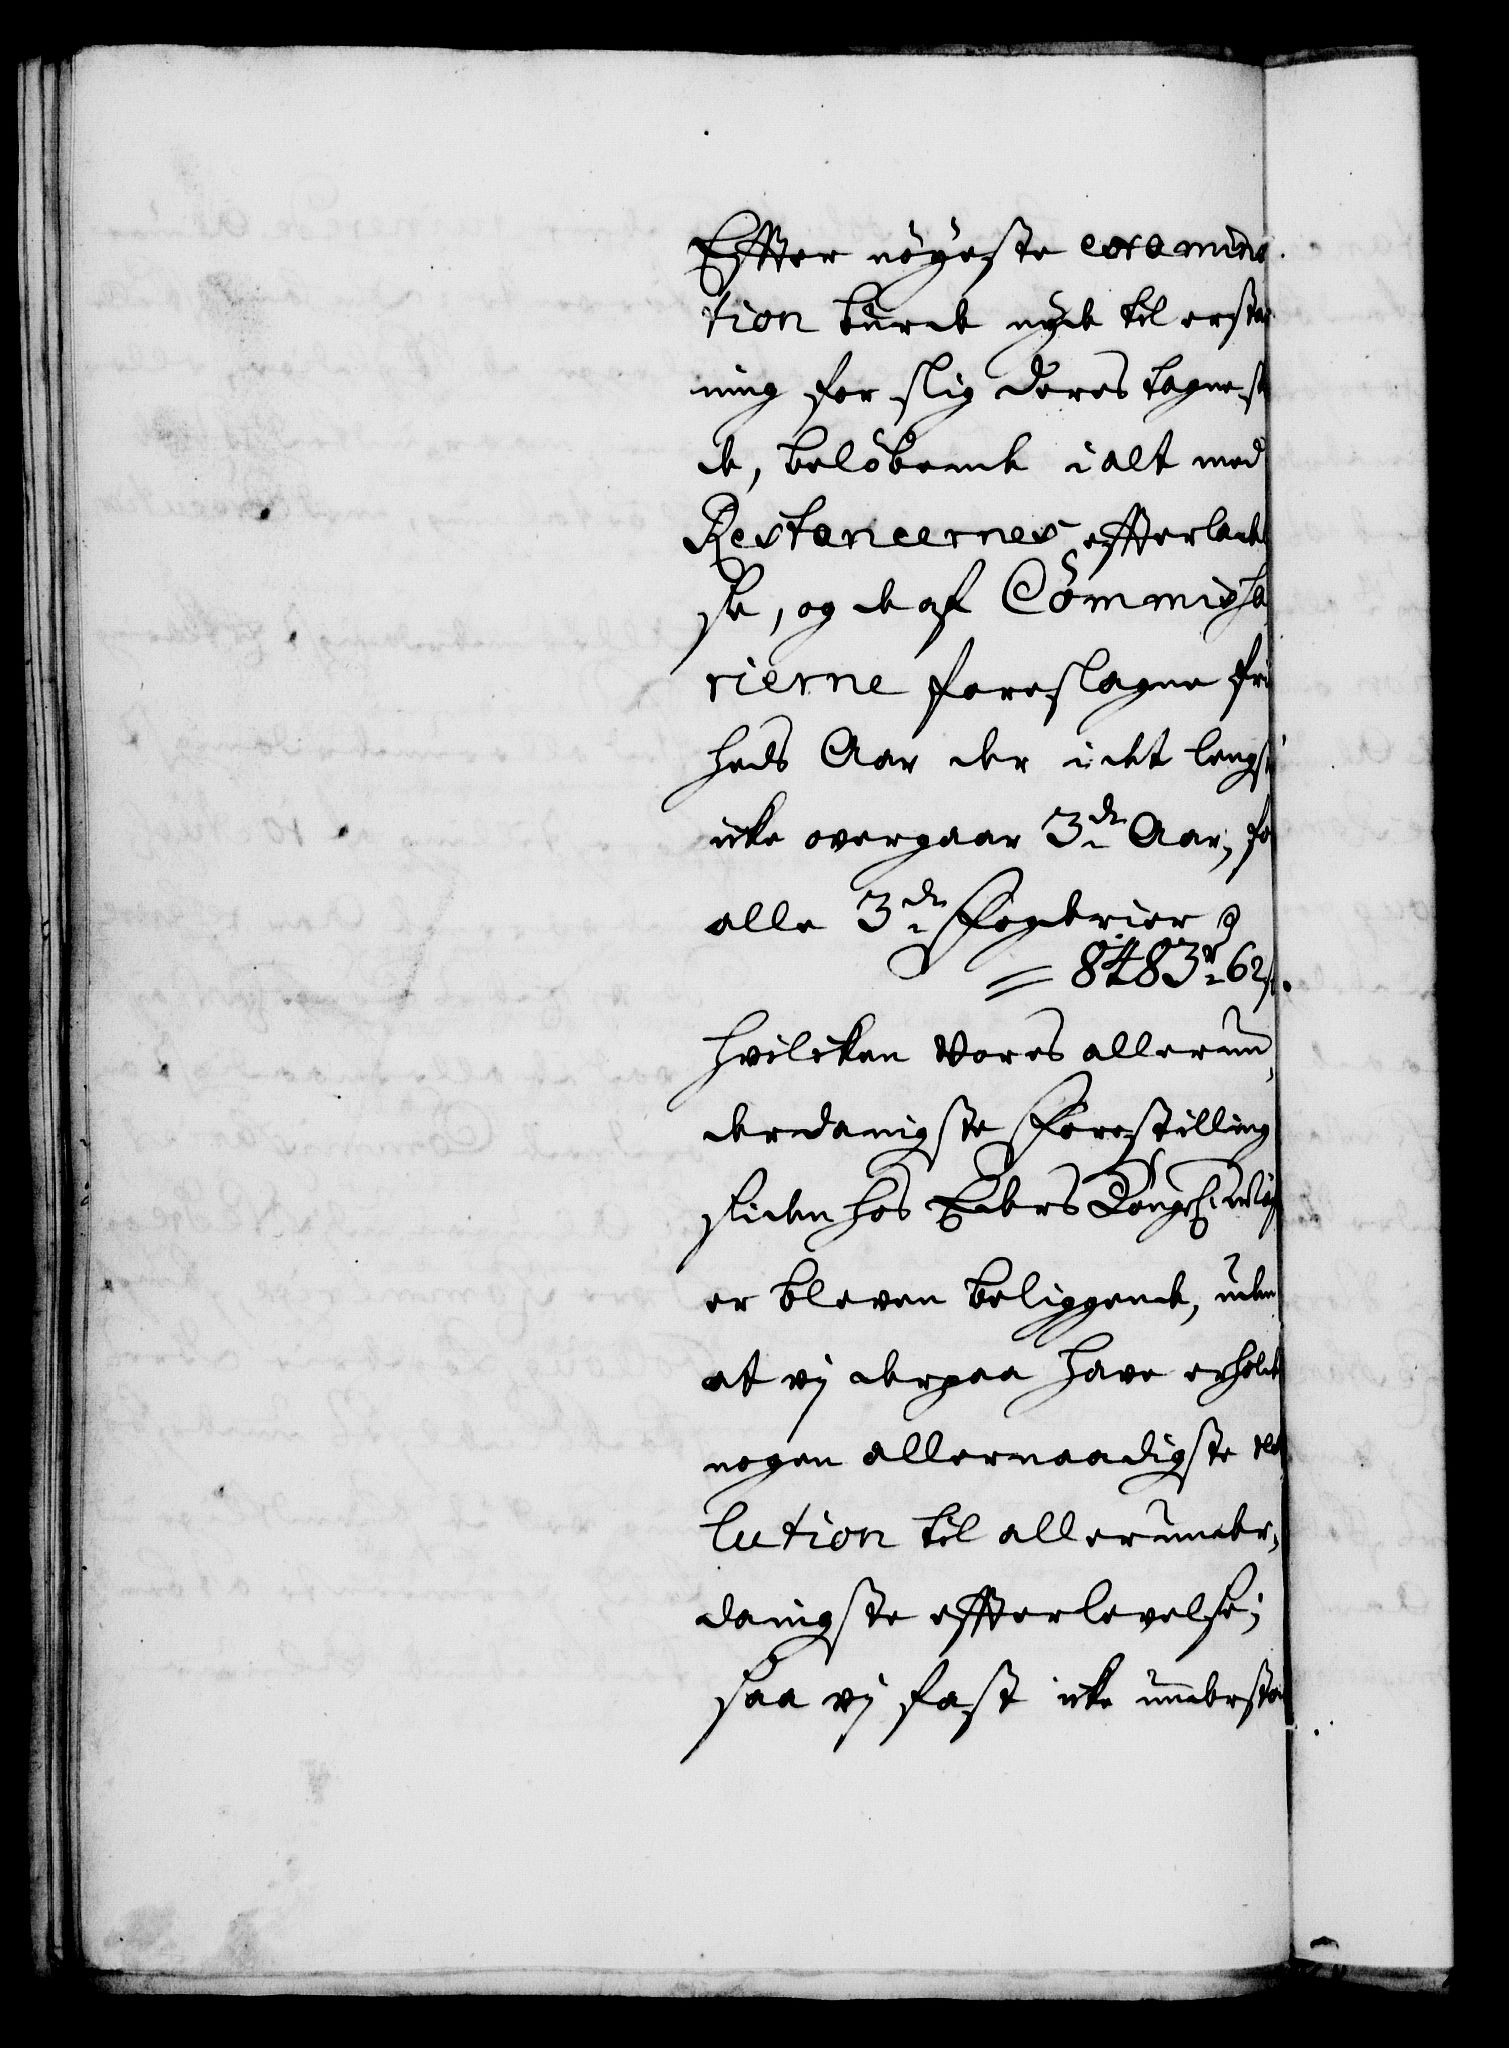 Effter nöyeste examina
tion burde nyde til erstat
ning for slig deres tagne ska
de, belöbende i alt med
Restancernes effterladel
se, og de af Commissa
rierne foreslagne fri
heds Aar der i det lengste
icke overgaar 3de Aar, for
alle 3de Fogderier
= 8483 r 62 s.
Hvilcken Vores allerun,
derdanigste Forestilling
siden hos Eders Kongel. May
er bleven beliggende, uden
at vj derpaa have erholdt
nogen allernaadigste reso
lution til allerunder,
danigste effterlevelse;
saa vj fast icke understaa